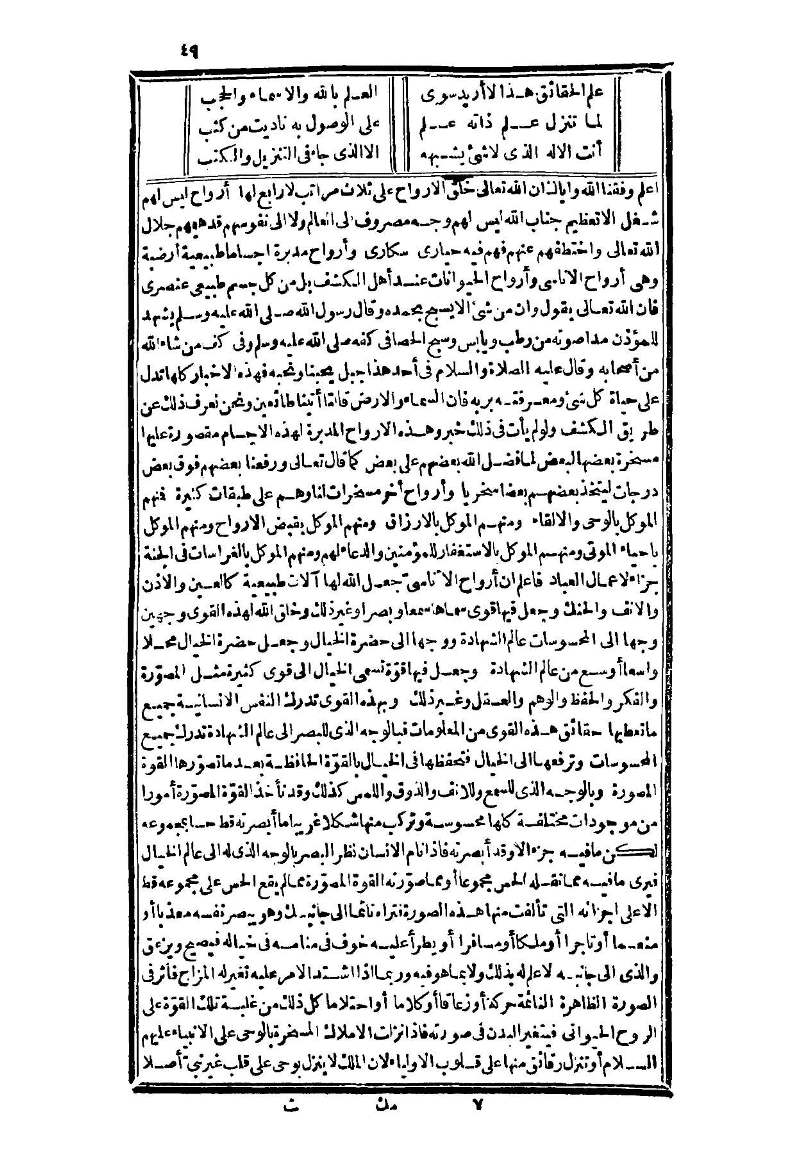 ٤٩
علم الحقائق هذا لا أريد سوى العلم بالله والاسماء والحجب
لما تنزل علم ذاته علم على الوصول به ناديت من كثب
أنت الاله الذى لا شئ يشبهه الا الذى جاء فى التنزيل والكتب
اعلم وفقنا الله واياك ان الله تعالى خلق الارواح على ثلاث مراتب لا رابع لها أرواح ليس لهم
شغل الا تعظيم جناب الله ليس لهم وجه مصروف الى العالم ولا الى نفوسهم قد هيمهم جلال
الله تعالى واختطفهم عنهم فهم فيه حيارى سكارى وأرواح مدبرة اجساما طبيعية أرضية
وهى أرواح الاناسى وأرواح الحيوانات عند أهل الكشف بل من كل جسم طبيعى عنصرى
فان الله تعالى يقول وان من شئ الا يسبح بحمده وقال رسول الله صلى الله عليه وسلم يشهد
للمؤذن مدا صوته من رطب ويابس وسبح الحصا فى كفه صلى الله عليه وسلم وفى كف من شاء الله
من أصحابه وقال عليه الصلاة والسلام فى أحد هذا جبل يحبنا ونحبه فهذه الاخبار كلها تدل
على حياة كل شئ ومعرفته بربه فان السماء والارض قالتا أتينا طائعين ونحن نعرف ذلك عن
طريق الكشف ولو لم يأت فى ذلك خبر وهذه الارواح المدبرة لهذه الاجسام مقصورة عليها
مسخرة بعضها لبعض لما فضل الله بعضهم على بعض كما قال تعالى ورفعنا بعضهم فوق بعض
درجات ليتخذ بعضهم بعضا سخريا وأرواح أخر مسخرات لنا وهم على طبقات كثيرة فمنهم
الموكل بالوحى والالقاء ومنهم الموكل بالارزاق ومنهم الموكل بقبض الارواح ومنهم الموكل
باحياء الموتى ومنهم الموكل بالاستغفار للمؤمنين والدعاء لهم ومنهم الموكل بالغراسات فى الجنة
جزاء لاعمال العباد فاعلم ان أرواح الاناسى جعل الله لها آلات طبيعية كالعين والاذن
والانف والحنك وجعل فيها قوى سماها سمعا وبصرا وغير ذلك وخلق الله لهذه القوى وجهين
وجها الى المحسوسات عالم الشهادة ووجها الى حضرة الخيال وجعل حضرة الخيال محلا
واسعا أوسع من عالم الشهادة وجعل فيها قوة تسمى الخيال الى قوى كثيرة مثل المصوّرة
والفكر والحفظ والوهم والعقل وغير ذلك وبهذه القوى تدرك النفس الانسانية جميع
ما تعطيها حقائق هذه القوى من المعلومات فبالوجه الذى للبصر الى عالم الشهادة تدرك جميع
المحسوسات وترفعها الى الخيال فتحفظها فى الخيال بالقوّة الحافظة بعد ما تصوّرها القوة
المصورة وبالوجه الذى للسمع وللانف والذوق واللمس كذلك وقد تأخذ القوّة المصوّرة أمورا
من موجودات مختلفة كلها محسوسة وتركب منها شكلا غريبا ما أبصرته قط حسا بمجموعه
لكن ما فيه جزء الا وقد أبصرته فاذا نام الانسان نظر البصر بالوجه الذى له الى عالم الخيال
فيرى ما فيه مما نقله الحس مجموعا أو مما صوّرته القوة المصوّرة مما لم يقع الحس على مجموعه قط
الا على اجزائه التى تألفت منها هذه الصورة فتراه نائما الى جانبك وهو يبصر نفسه معذبا أو
منعما أو تاجرا أو ملكا أو مسافرا أو يطرأ عليه خوف فى منامه فى خياله فيصيح ويزعق
والذى الى جانبه لا علم له بذلك ولا بما هو فيه وربما اذا اشتد الامر عليه تغير له المزاج فأثر فى
الصورة الظاهرة النائمة حركة أو زعاقا أو كلاما أو احتلاما كل ذلك من غلبة تلك القوّة على
الروح الحيوانى فيتغير البدن فى صورته فاذا نزلت الاملاك المسخرة بالوحى على الانبياء عليهم
السلام أو تنزل رقائق منها على قلوب الاولياء لان الملك لا ينزل بوحى على قلب غير نبىّ أصلا
٧ مك ث